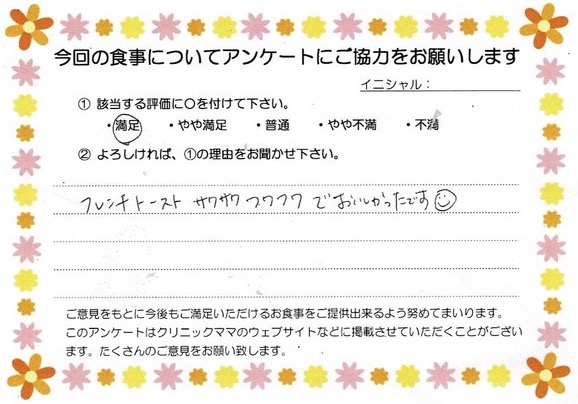 今回の食事についてアンケートにご協力をお願いします
イニシャル：
① 該当する評価に〇を付けて下さい。
・満足 ・やや満足 ・普通 ・やや不満 ・不満
② よろしければ、①の理由をお聞かせ下さい。
フレンチトースト サクサク フワフワ でおいしかったです
ご意見をもとに今後もご満足いただけるお食事をご提供出来るよう努めてまいります。
このアンケートはクリニックママのウェブサイトなどに掲載させていただくことがござい
ます。たくさんのご意見をお願い致します。